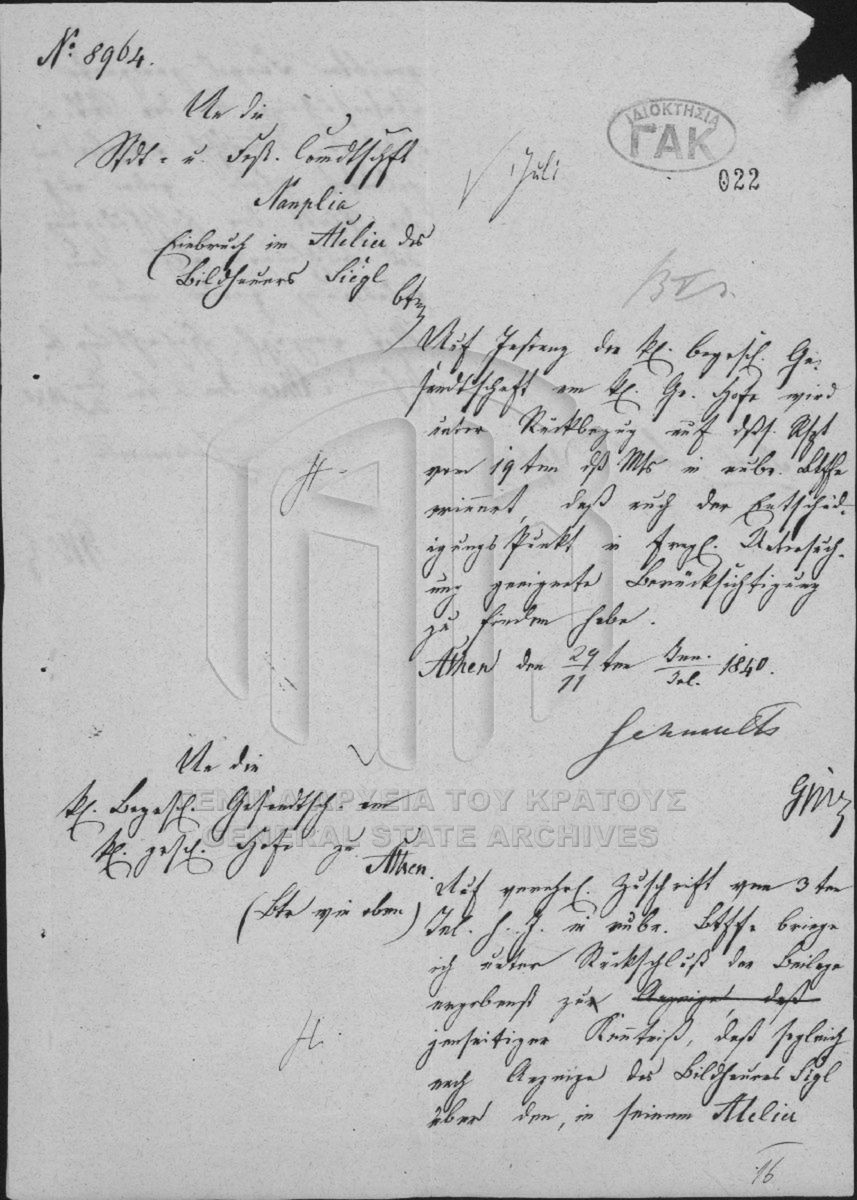 No. 8964.
ΙΔΙΟΚΤΗΣΙΑ
ΓΑΚ
022
An die
Stdt- u. Fest. Commdtschft
Nauplia
Juli
Einbruch im Atelier des
Bildhauers Siegl
btr
Auf der kgl. bayrisch. Ge-
sandtschaft am kgl. Gr. Hofe wird
unter Rückbezug auf
vom 19ten in rubr.
erinnert, daß auch der Entschäd-
igungs Punkt in Untersuch-
ung geeignete Berücksichtigung
zu finden habe.
Athen den 29/11 ten Jun./Jul. 1840.
An die
kgl. Bayrisch. Gesandtsch. am
kgl. griech. Hofe zu Athen.
(Btr wie oben)
ΓΕΝΙΚΑ ΑΡΧΕΙΑ ΤΟΥ ΚΡΑΤΟΥΣ
GENERAL STATE ARCHIVES
Auf verehrl. Zuschrift vom 3ten
Jul. h. J. in rubr. Btrffe bringe
ich unter Rückschluß der Beilage
ergebenst zur Anzeige, daß
jenseitiger Kenntniß, daß sogleich
nach Anzeige des Bildhauers Sigl
über den, in seinem Atelier
16